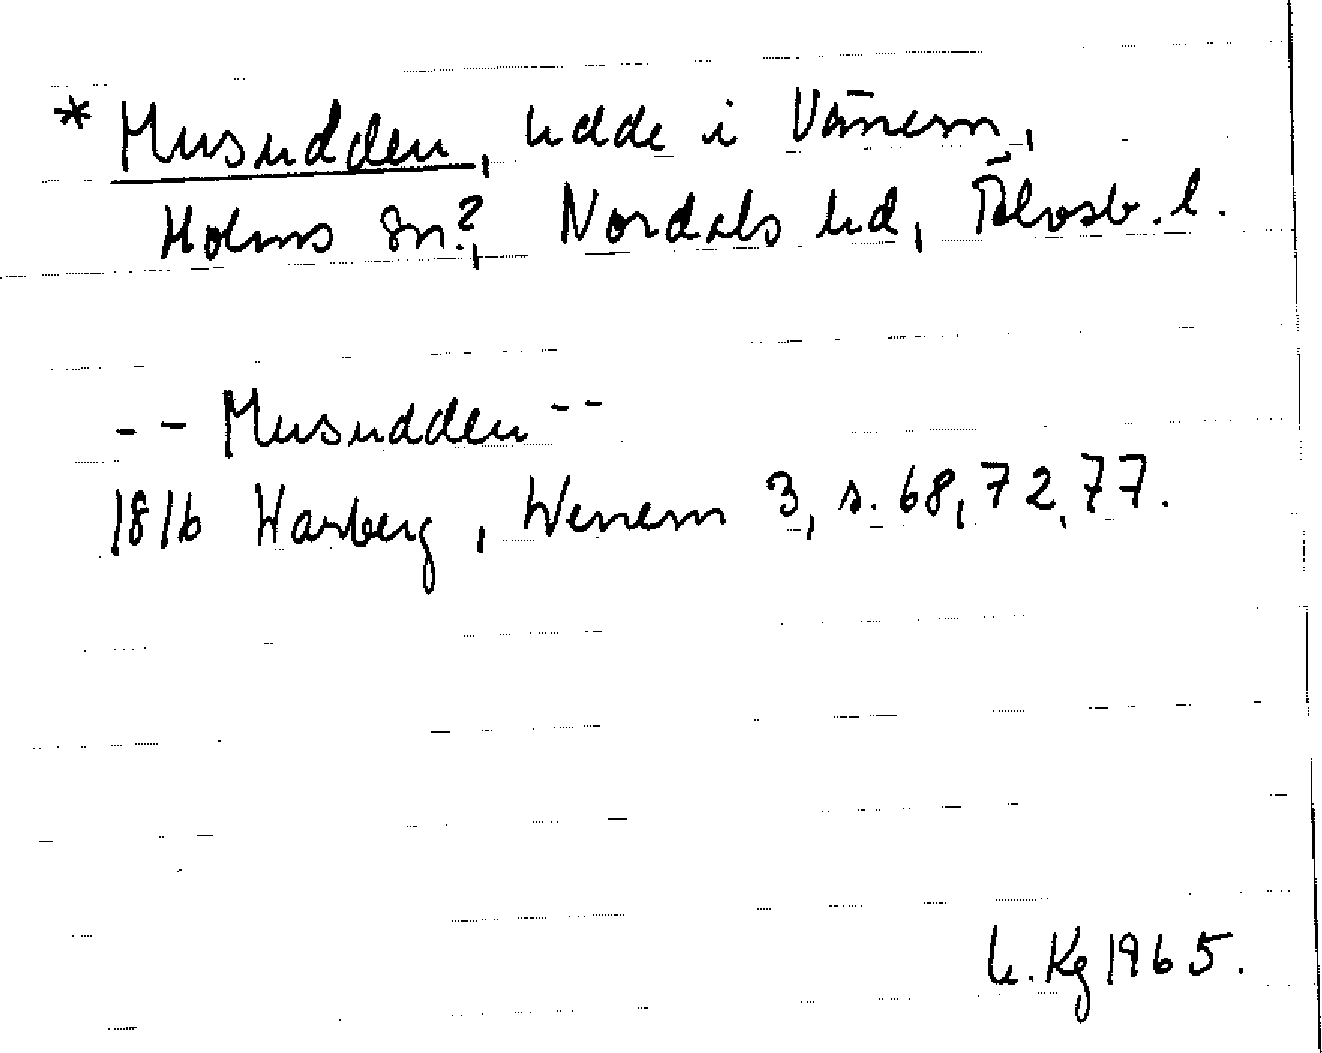 * Musudden, udde i Vänern,
Holms sn?, Nordals hd, Älvsb. l.
-- Musudden --
1816 Warberg, Wenern 3, s. 68, 72, 77.
Kg 1965.